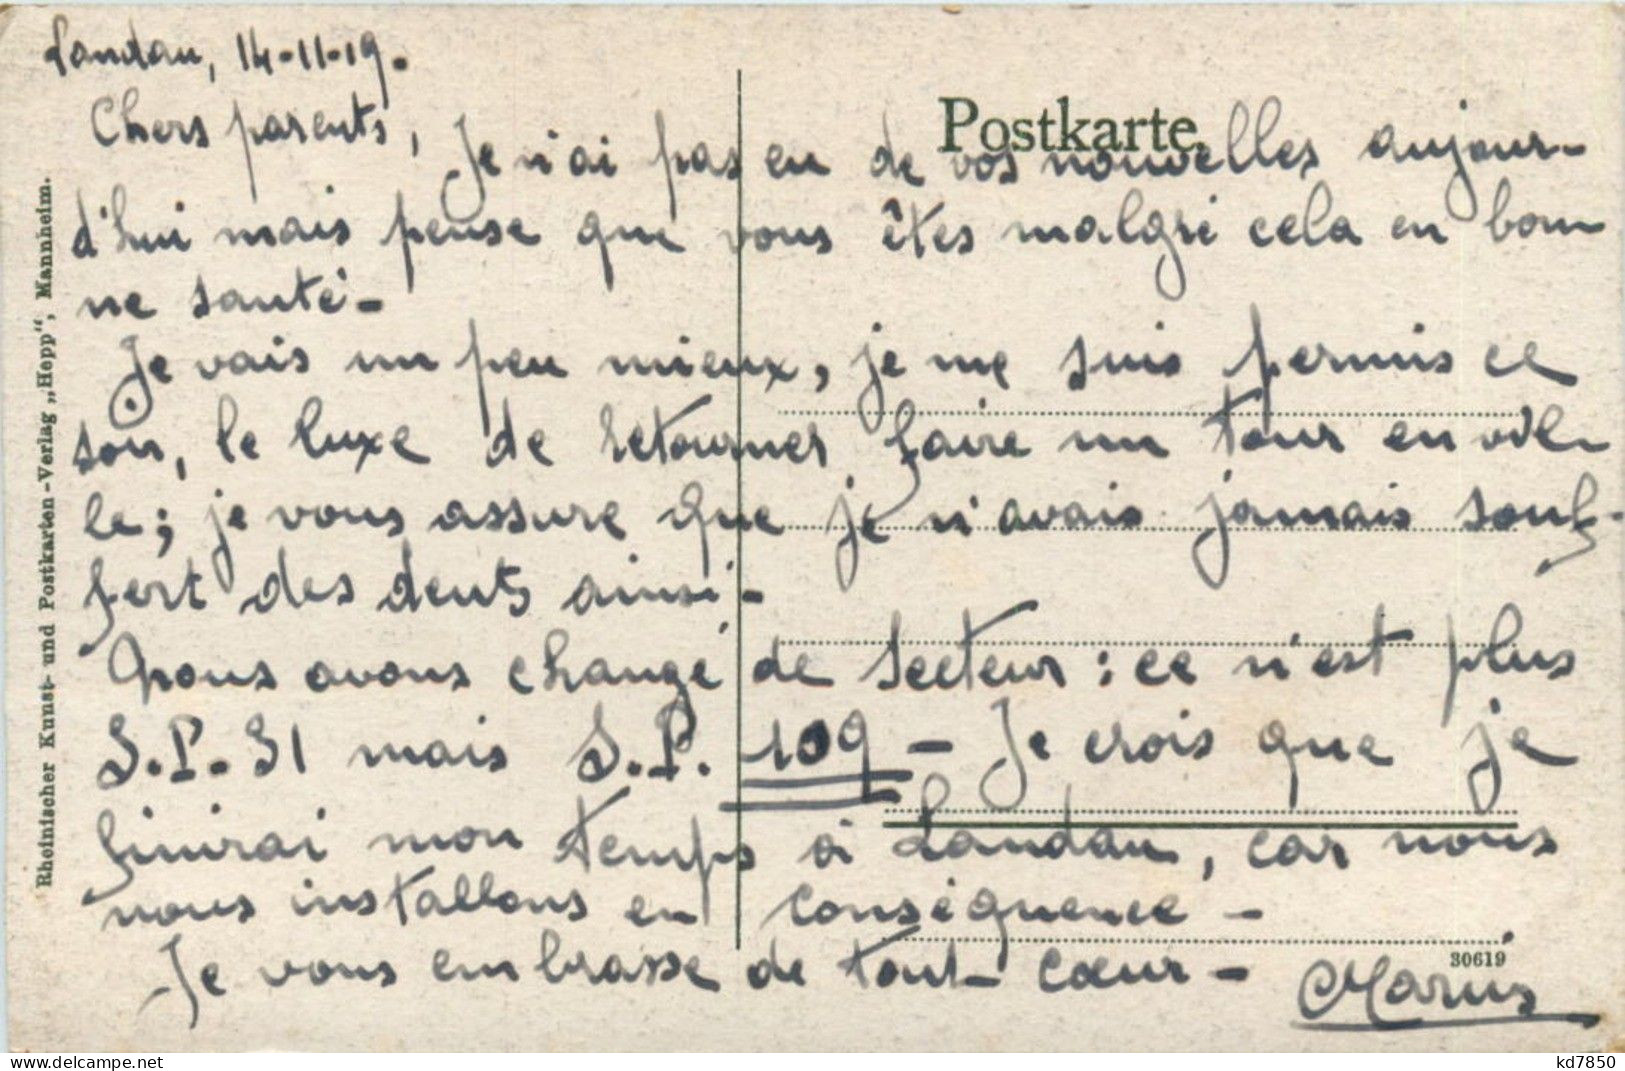 Landau, 14-11-19.
Postkarte.
Chers parents,
Je n'ai pas eu de vos nouvelles aujour-
d'hui mais pense que vous êtes malgré cela en bon-
ne santé-
Je vais un peu mieux, je me suis permis ce
soir, le luxe de retourner faire un tour en vil-
le; je vous assure que je n'avais jamais souf-
fert des dents ainsi-
Nous avons changé de secteur: ce n'est plus
S.P. 31 mais S.P. 109 - Je crois que je
finirai mon temps à Landau, car nous
nous installons en conséquence -
Je vous embrasse de tout cœur -
Marius
30619
Rheinischer Kunst- und Postkarten-Verlag „Hepp“, Mannheim.
kd7850